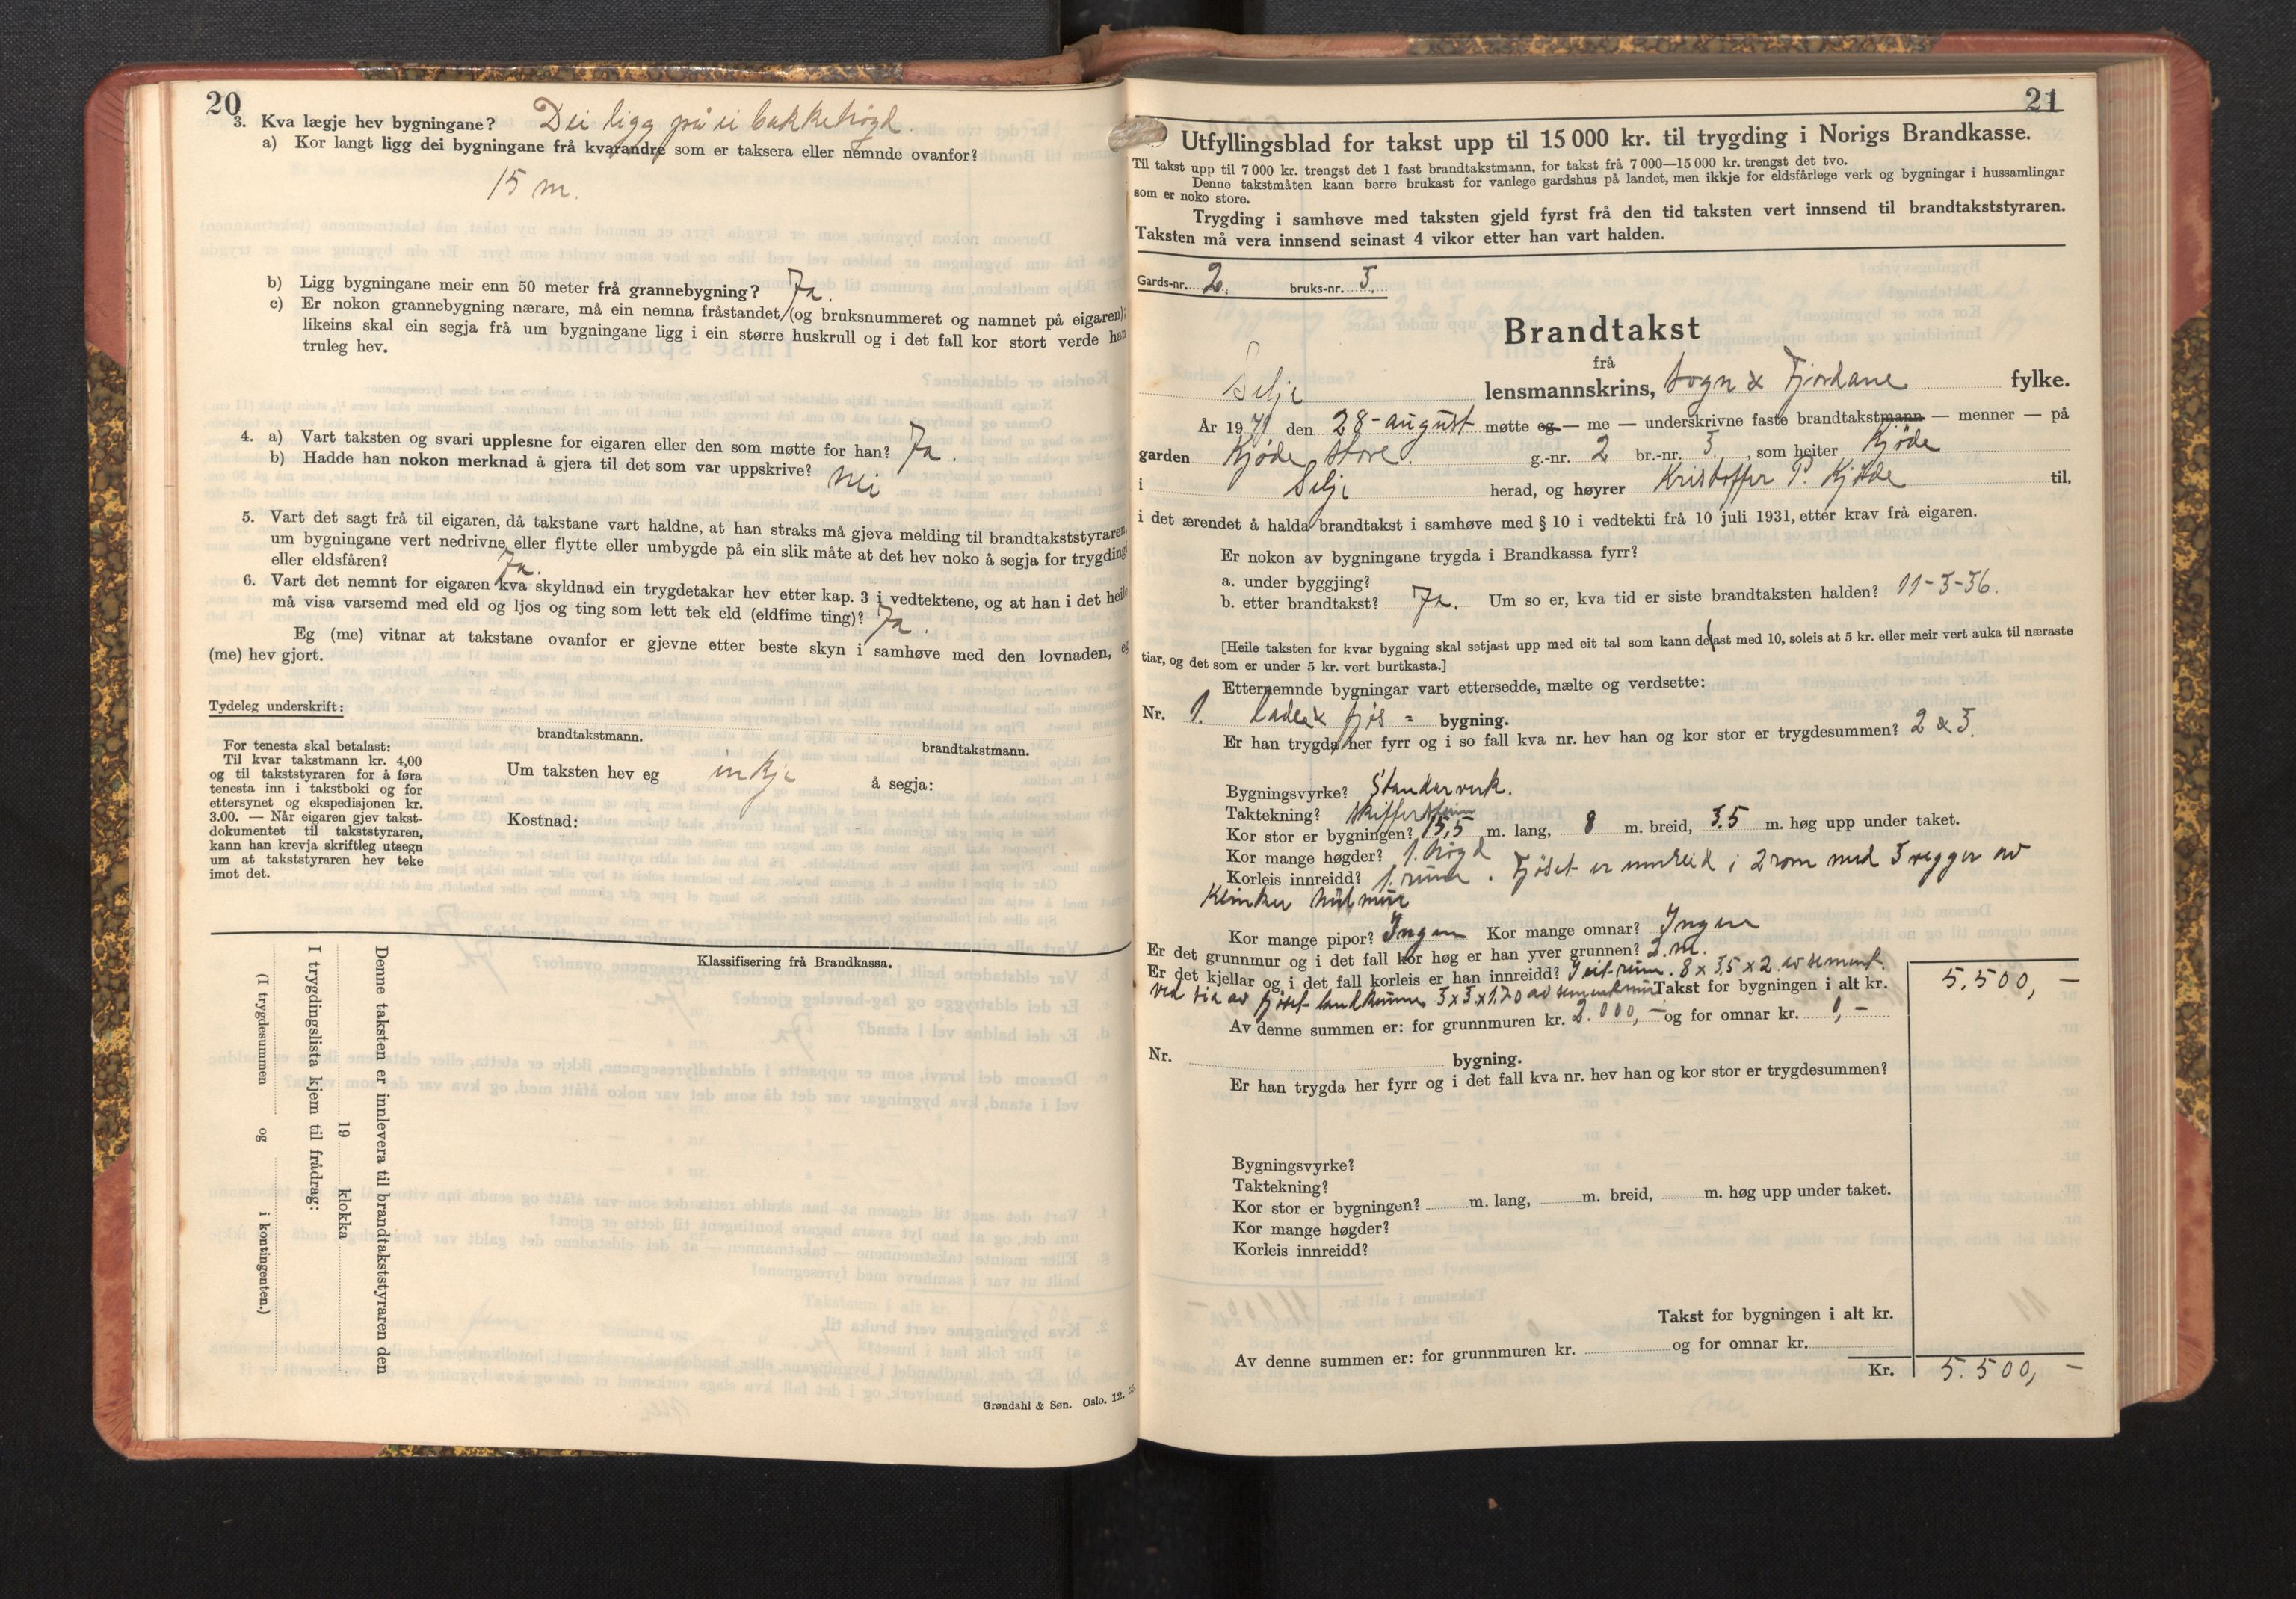 20
3. Kva lægje hev bygningane? Dei ligg på ei bakkehøgd.
a) Kor langt ligg dei bygningane frå kvarandre som er taksera eller nemnde ovanfor?
15 m.
b) Ligg bygningane meir enn 50 meter frå grannebygning? Ja.
c) Er nokon grannebygning nærare, må ein nemna fråstandet (og bruksnummeret og namnet på eigaren);
likeins skal ein segja frå um bygningane ligg i ein større huskrull og i det fall kor stort verde han
truleg hev.
4. a) Vart taksten og svari upplesne for eigaren eller den som møtte for han? Ja.
b) Hadde han nokon merknad å gjera til det som var uppskrive? Nei
5. Vart det sagt frå til eigaren, då takstane vart haldne, at han straks må gjeva melding til brandtakststyraren,
um bygningane vert nedrivne eller flytte eller umbygde på ein slik måte at det hev noko å segja for trygding
eller eldsfåren? Ja.
6. Vart det nemnt for eigaren kva skyldnad ein trygdetakar hev etter kap. 3 i vedtektene, og at han i det heile
må visa varsemd med eld og ljos og ting som lett tek eld (eldfime ting)? Ja.
Eg (me) vitnar at takstane ovanfor er gjevne etter beste skyn i samhøve med den lovnaden, eg
(me) hev gjort.
Tydeleg underskrift:
brandtakstmann.
brandtakstmann.
For tenesta skal betalast:
Til kvar takstmann kr. 4,00
og til takststyraren for å føra
tenesta inn i takstboki og for
ettersynet og ekspedisjonen kr.
3.00. — Når eigaren gjev takst-
dokumentet til takststyraren,
kann han krevja skriftleg utsegn
um at takststyraren hev teke
imot det.
Um taksten hev eg inkje å segja:
Kostnad:
Klassifisering frå Brandkassa.
Denne taksten er innlevera til brandtakststyraren den
19 klokka
I trygdingslista kjem til frådrag:
(I trygdesummen og i kontingenten.)
Grøndahl & Søn. Oslo. 12.
21
Utfyllingsblad for takst upp til 15 000 kr. til trygding i Norigs Brandkasse.
Til takst upp til 7 000 kr. trengst det 1 fast brandtakstmann, for takst frå 7 000—15 000 kr. trengst det tvo.
Denne takstmåten kann berre brukast for vanlege gardshus på landet, men ikkje for eldsfårlege verk og bygningar i hussamlingar
som er noko store.
Trygding i samhøve med taksten gjeld fyrst frå den tid taksten vert innsend til brandtakststyraren.
Taksten må vera innsend seinast 4 vikor etter han vart halden.
Gards-nr. 2. bruks-nr. 3.
Brandtakst
frå
Selje lensmannskrins, Sogn & Fjordane fylke.
År 1941 den 28-august møtte eg — me — underskrivne faste brandtakstmann — menner — på
garden Kjøde store. g.-nr. 2 br.-nr. 3, som heiter Kjøde
i Selje herad, og høyrer Kristoffer P. Kjøde til,
i det ærendet å halda brandtakst i samhøve med § 10 i vedtekti frå 10 juli 1931, etter krav frå eigaren.
Er nokon av bygningane trygda i Brandkassa fyrr?
a. under byggjing?
b. etter brandtakst? Ja. Um so er, kva tid er siste brandtaksten halden? 11-3-36.
[Heile taksten for kvar bygning skal setjast upp med eit tal som kann delast med 10, soleis at 5 kr. eller meir vert auka til næraste
tiar, og det som er under 5 kr. vert burtkasta.]
Etternemnde bygningar vart ettersedde, mælte og verdsette:
Nr. 1. Lade & fjøs = bygning.
Er han trygda her fyrr og i so fall kva nr. hev han og kor stor er trygdesummen? 2 & 3.
Bygningsvyrke? Standarverk.
Taktekning? skifferstein
Kor stor er bygningen? 15,5 m. lang, 8 m. breid, 3.5 m. høg upp under taket.
Kor mange høgder? 1. høgd
Korleis innreidd? 1. rum. Fjøset er innreid i 2 rom med 3 vegger av
Klinker hulmur
Kor mange pipor? Ingen Kor mange omnar? Ingen
Er det grunnmur og i det fall kor høg er han yver grunnen? 2. m.
Er det kjellar og i det fall korleis er han innreidd? I eit rum. 8 x 3,5 x 2. av sement.
ved sia av fjøset landkumme 3 x 3 x 1.70 av sementmur Takst for bygningen i alt kr. 5.500, —
Av denne summen er: for grunnmuren kr. 2.000, — og for omnar kr. 0, —
Nr. bygning.
Er han trygda her fyrr og i det fall kva nr. hev han og kor stor er trygdesummen?
Bygningsvyrke?
Taktekning?
Kor stor er bygningen? m. lang, m. breid, m. høg upp under taket.
Kor mange høgder?
Korleis innreidd?
Takst for bygningen i alt kr.
Av denne summen er: for grunnmuren kr. og for omnar kr.
Kr. 5.500, —